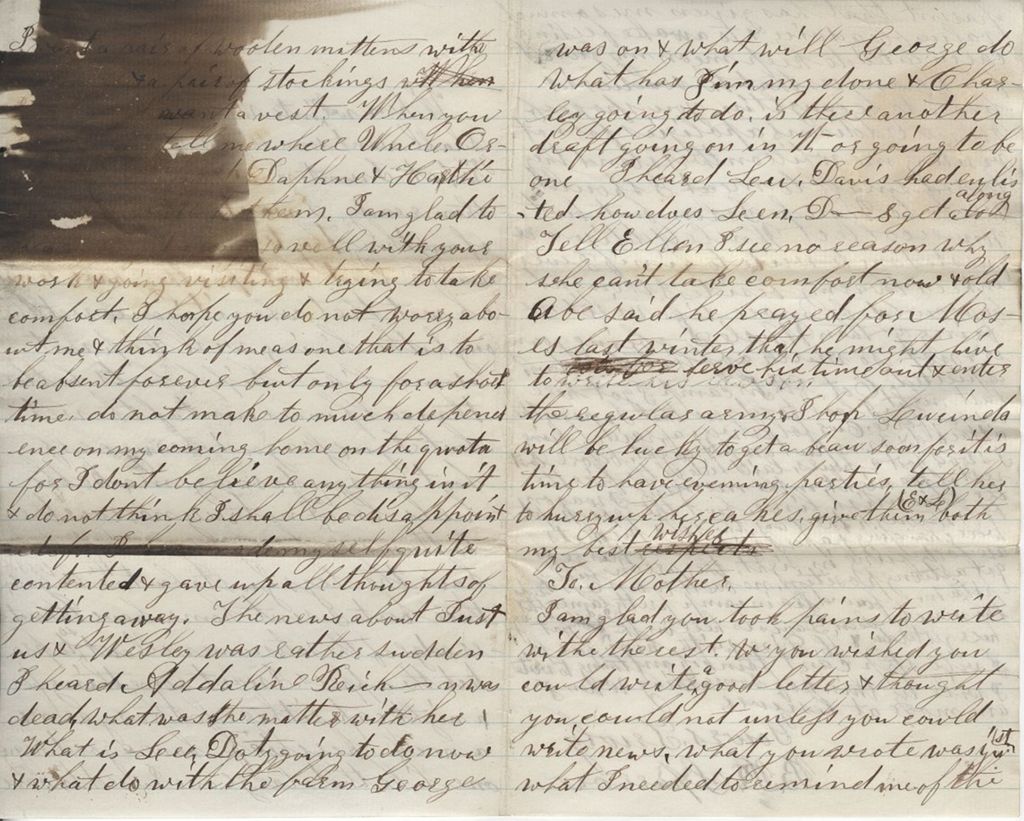 a pair of woolen mittens with
& a pair of stockings
want a vest. When you
tell me where Uncle Or-
Daphne & Hattie
them. I am glad to
well with your
work & going visiting & trying to take
comfort. I hope you do not worry abo-
ut me & think of me as one that is to
be absent forever but only for a short
time. do not make to much depend
ence on my coming home on the quota
for I dont believe any thing in it
& do not think I shall be disappoint
made myself quite
contented & gave up all thoughts of
getting away. The news about Just
us & Wesley was rather sudden
I heard Addaline was
dead, what was the matter with her
What is Lee, Doty going to do now
& what do with the farm George
was on & what will George do
what has Jimmy done & Char-
ley going to do. is there another
draft going on in or going to be
one I heard Lew. Davis had enlis
-ted how does Leen. D— & get along
Tell Ellen I see no reason why
she can't take comfort now & old
Abe said he prayed for Mos-
es last winter that he might live
to serve his time out & enter
the regular army. I hop Lucinda
will be lucky to get a beau soon for it is
time to have evening parties, tell her
to hurry up her cakes, give them (E & L) both
my best wishes
To. Mother.
I am glad you took pains to write
with the rest. you wished you
could write a good letter & thought
you could not unless you could
write news, what you wrote was just
what I needed to remind me of the